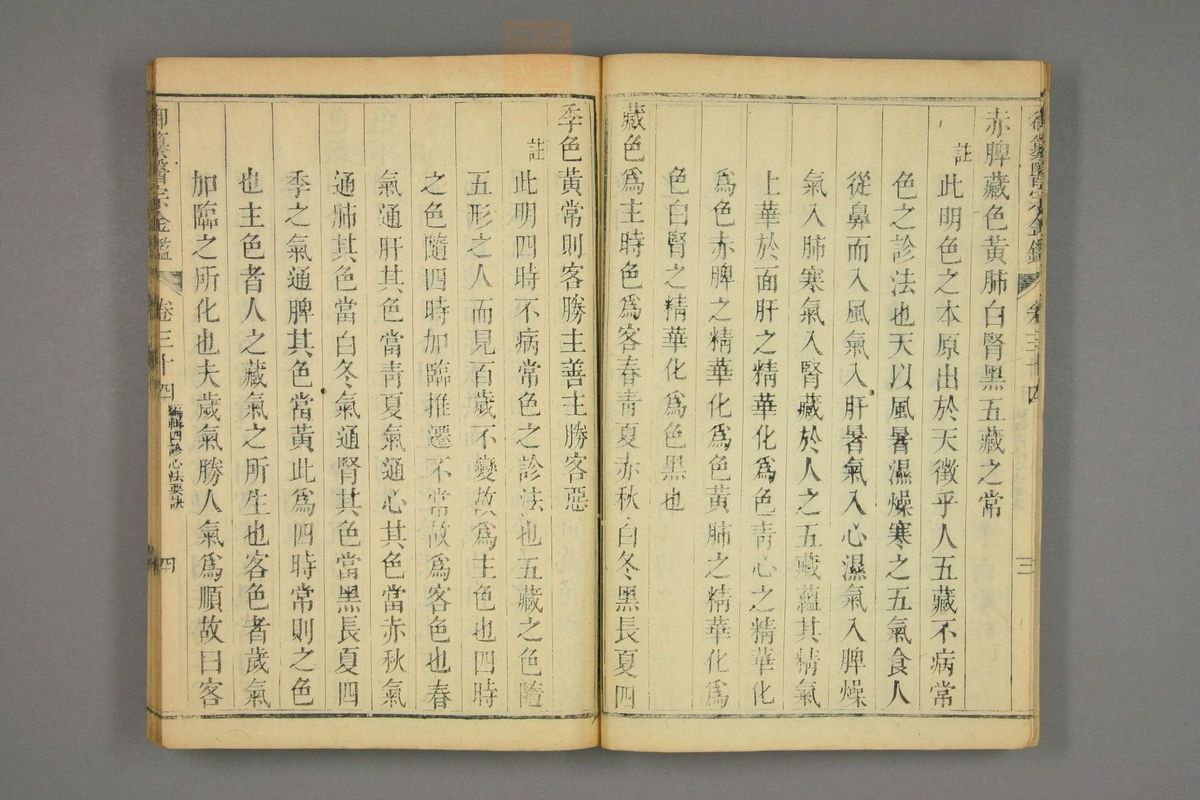 御纂醫宗金鑑 卷三十四 三
赤脾藏色黃肺白腎黑五藏之常
註
此明色之本原出於天徵乎人五藏不病常
色之診法也天以風暑濕燥寒之五氣食人
從鼻而入風氣入肝暑氣入心濕氣入脾燥
氣入肺寒氣入腎藏於人之五藏蘊其精氣
上華於面肝之精華化爲色青心之精華化
爲色赤脾之精華化爲色黃肺之精華化爲
色白腎之精華化爲色黑也
藏色爲主時色爲客春青夏赤秋白冬黑長夏四
季色黃常則客勝主善主勝客惡
註
此明四時不病常色之診法也五藏之色隨
五形之人而見百歲不變故爲主色也四時
之色隨四時加臨推遷不常故爲客色也春
氣通肝其色當青夏氣通心其色當赤秋氣
通肺其色當白冬氣通腎其色當黑長夏四
季之氣通脾其色當黃此爲四時常則之色
也主色者人之藏氣之所生也客色者歲氣
加臨之所化也夫歲氣勝人氣爲順故曰客
御纂醫宗金鑑 卷三十四 編輯四診心法要訣 四